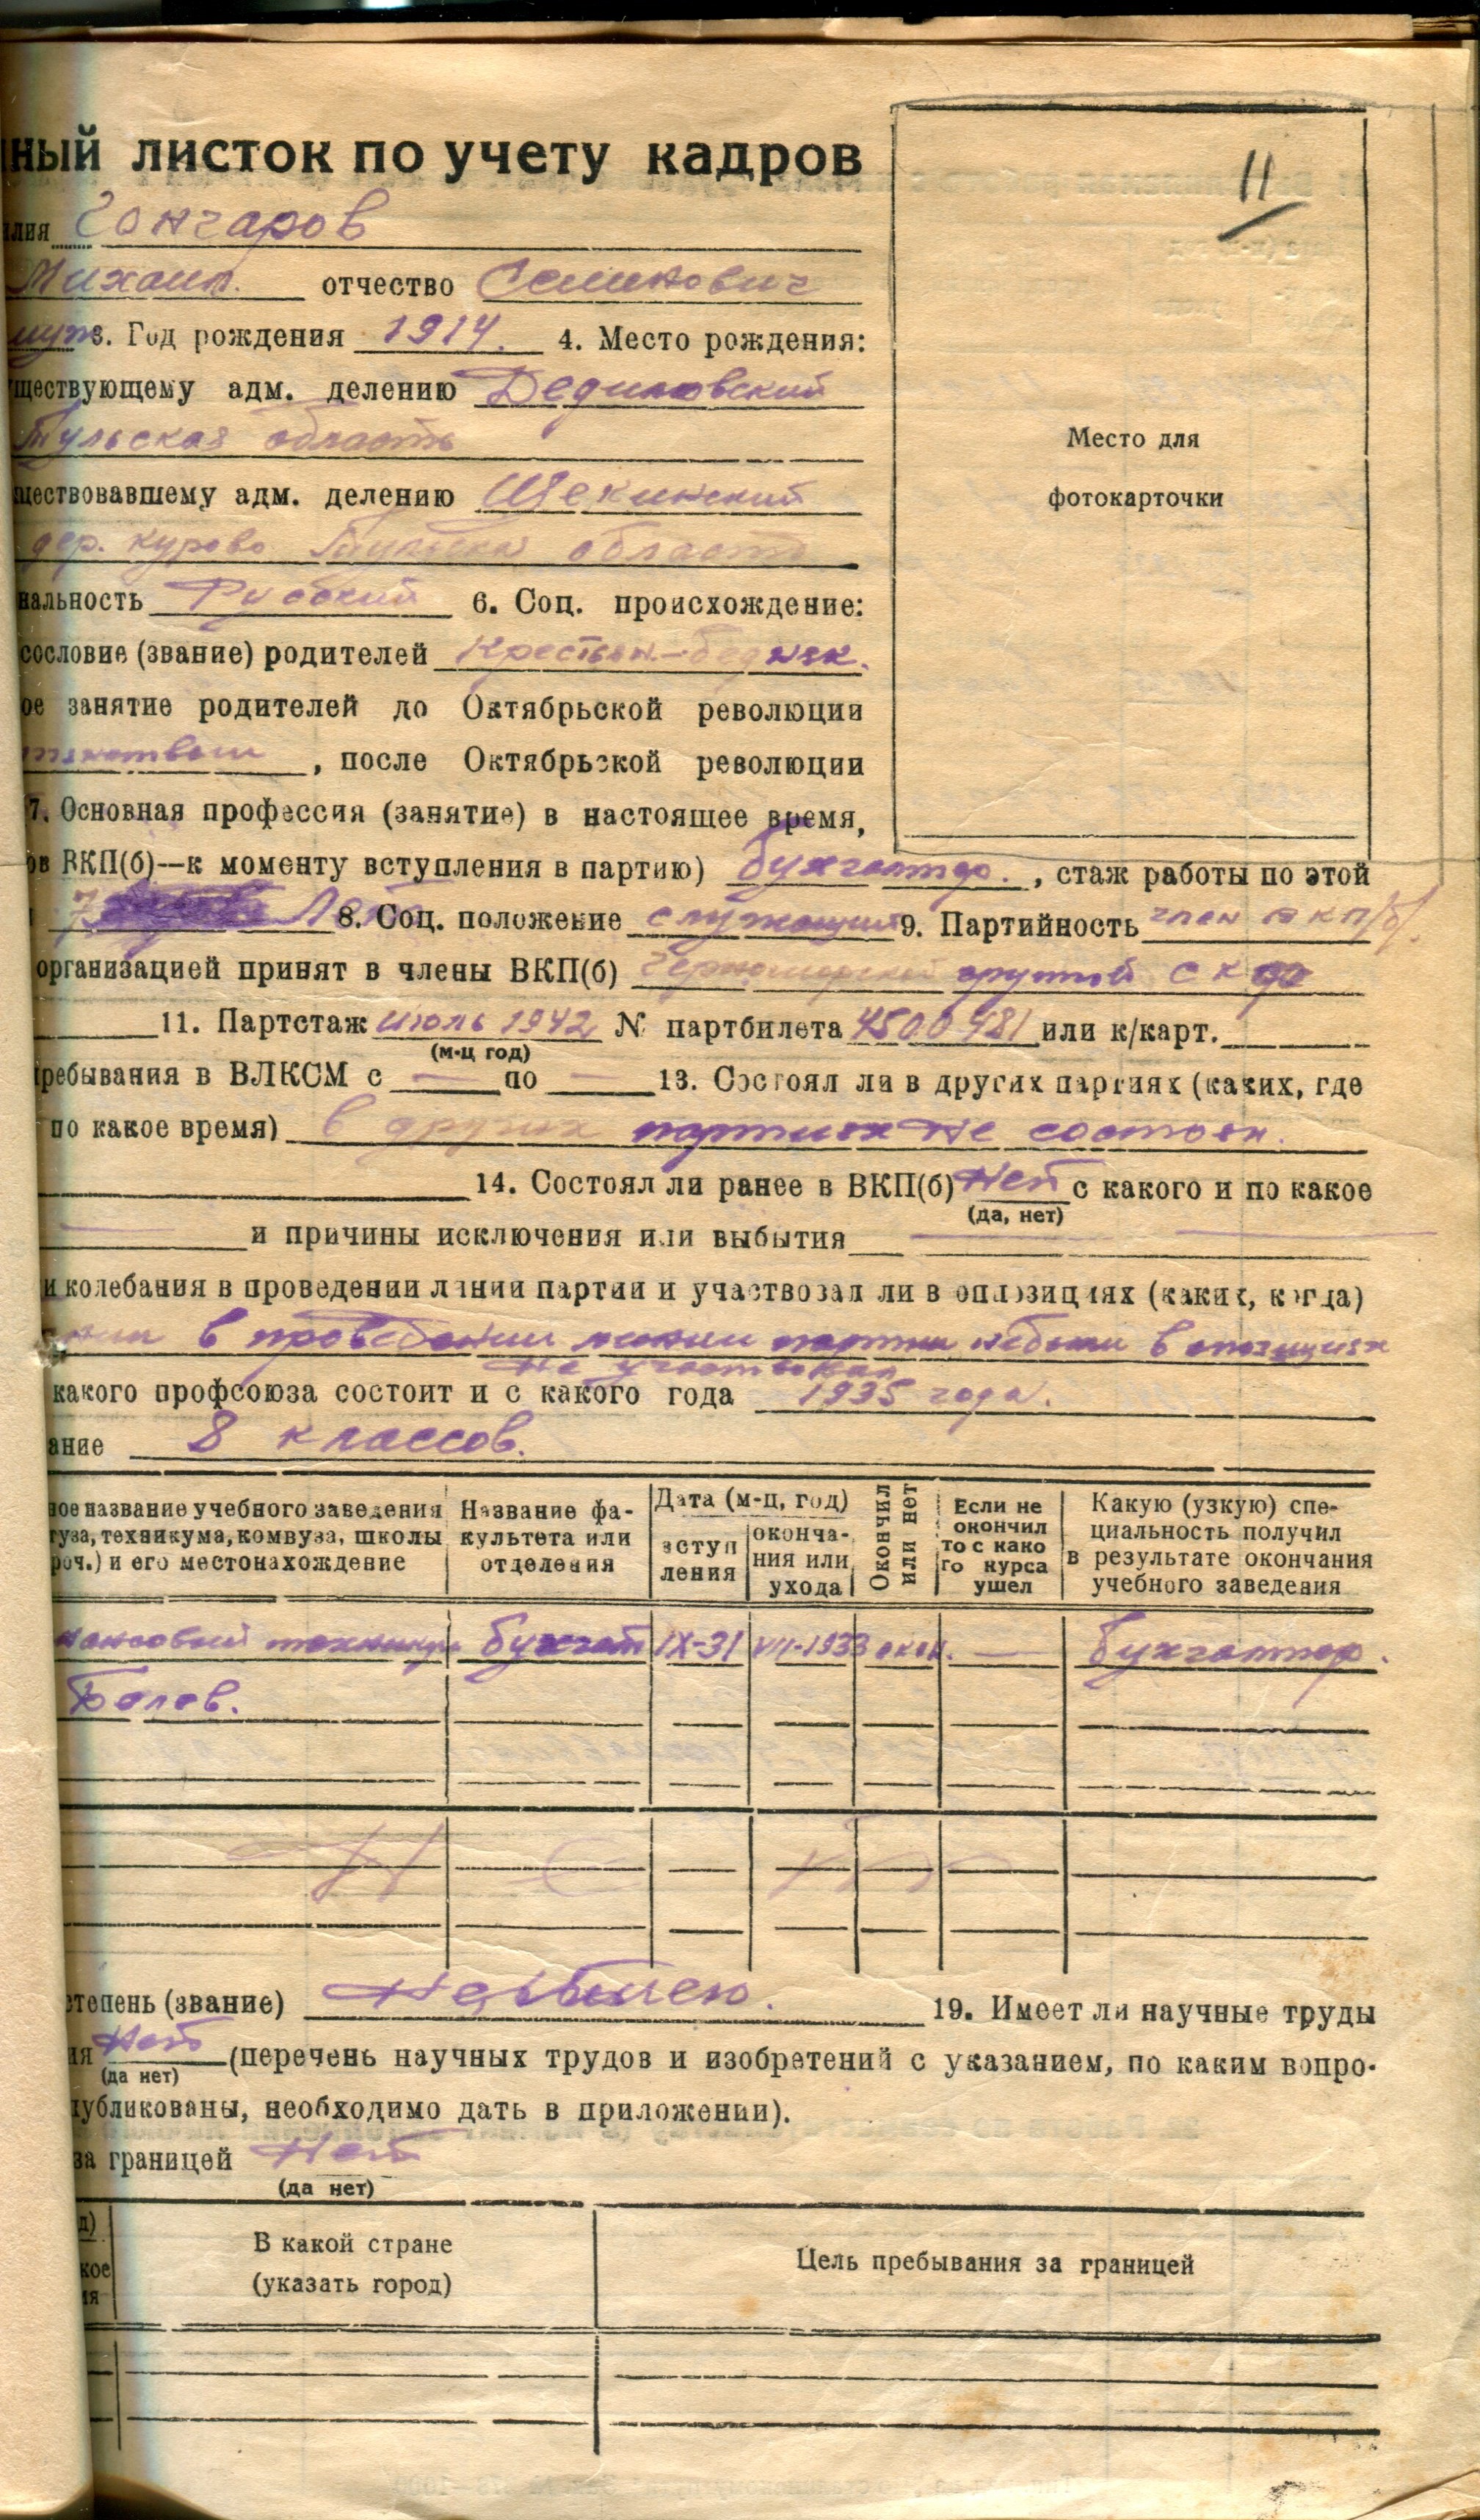 ный листок по учету кадров
11
илия Гончаров
Михаил. отчество Семенович
муж 3. Год рождения 1914. 4. Место рождения:
ществующему адм. делению Дедиловский
Тульская область
ществовавшему адм. делению Щекинский
дер. Курово Тульская область
Место для
фотокарточки
нальность Русский 6. Соц. происхождение:
сословие (звание) родителей Крестьян.-бедняк.
ое занятие родителей до Октябрьской революции
, после Октябрьской революции
7. Основная профессия (занятие) в настоящее время,
ов ВКП(б)—к моменту вступления в партию) бухгалтер. , стаж работы по этой
7 Лет 8. Соц. положение служащий 9. Партийность член ВКП(б).
организацией принят в члены ВКП(б) Черноморской группой СКФ
11. Партстаж июль 1942 № партбилета 4500481 или к/карт.
(м-ц год)
пребывания в ВЛКСМ с — по — 13. Состоял ли в других партиях (каких, где
по какое время) в других партиях не состоян.
14. Состоял ли ранее в ВКП(б) Нет с какого и по какое
(да, нет)
и причины исключения или выбытия
и колебания в проведении линии партии и участвовал ли в оппозициях (каких, когда)
в проведении линии партии небыли в опозициях
не участвовал
какого профсоюза состоит и с какого года 1935 года.
ание 8 классов.
ное название учебного заведения
туза, техникума, комвуза, школы
роч.) и его местонахождение
Название фа-
культета или
отделения
Дата (м-ц, год)
вступ
ления
оконча-
ния или
ухода
Окончил
или нет
Если не
окончил
то с како
го курса
ушел
Какую (узкую) спе-
циальность получил
в результате окончания
учебного заведения
нансовый техникум бухгалт IX-31 VII-1933 окон. — бухгалтер.
степень (звание) Не имею. 19. Имеет ли научные труды
ия Нет (перечень научных трудов и изобретений с указанием, по каким вопро-
(да нет)
публикованы, необходимо дать в приложении).
за границей Нет
(да нет)
д)
кое
ия
В какой стране
(указать город)
Цель пребывания за границей